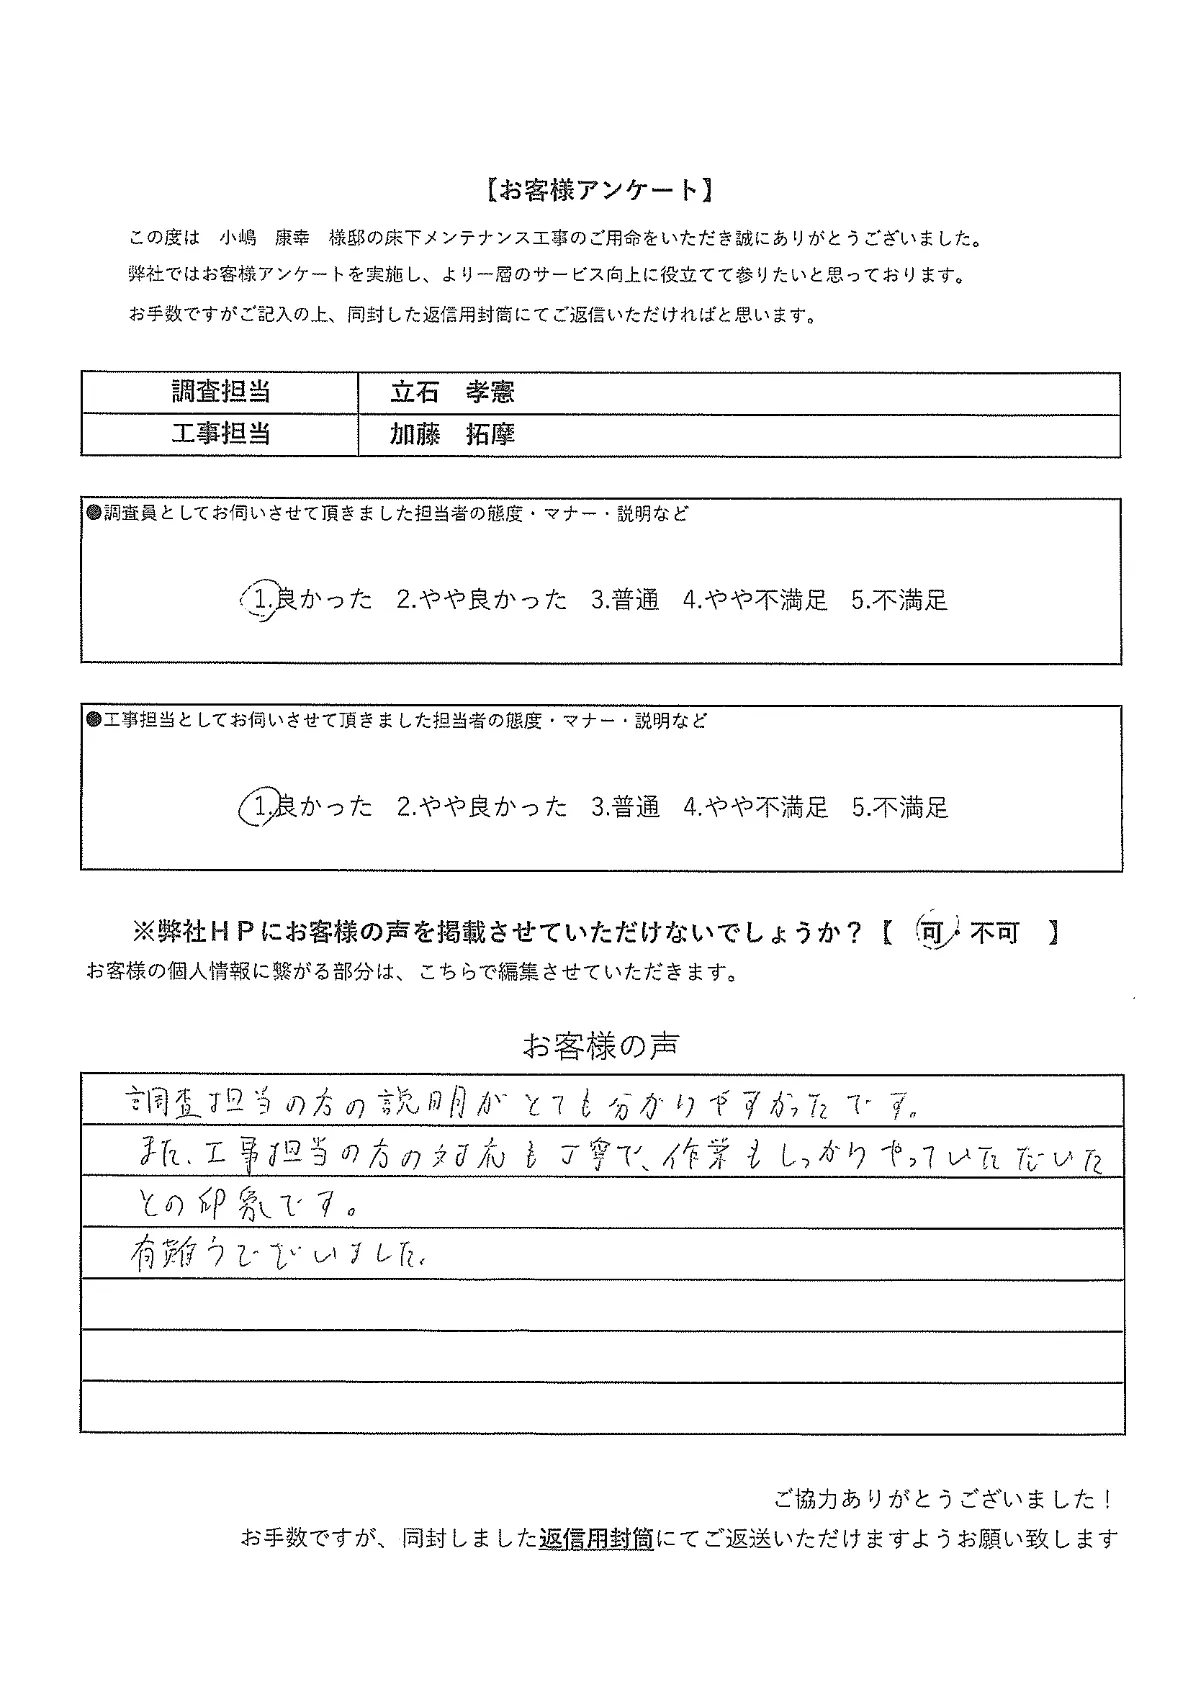 【お客様アンケート】
この度は　小嶋　康幸　様邸の床下メンテナンス工事のご用命をいただき誠にありがとうございました。
弊社ではお客様アンケートを実施し、より一層のサービス向上に役立てて参りたいと思っております。
お手数ですがご記入の上、同封した返信用封筒にてご返信いただければと思います。
調査担当　立石　孝憲
工事担当　加藤　拓摩
●調査員としてお伺いさせて頂きました担当者の態度・マナー・説明など
1.良かった　2.やや良かった　3.普通　4.やや不満足　5.不満足
●工事担当としてお伺いさせて頂きました担当者の態度・マナー・説明など
1.良かった　2.やや良かった　3.普通　4.やや不満足　5.不満足
※弊社ＨＰにお客様の声を掲載させていただけないでしょうか？【　可・不可　】
お客様の個人情報に繋がる部分は、こちらで編集させていただきます。
お客様の声
調査担当の方の説明がとても分かりやすかったです。
また、工事担当の方の対応も丁寧で、作業もしっかりやっていただいた
との印象です。
有難うございました。
ご協力ありがとうございました！
お手数ですが、同封しました返信用封筒にてご返送いただけますようお願い致します